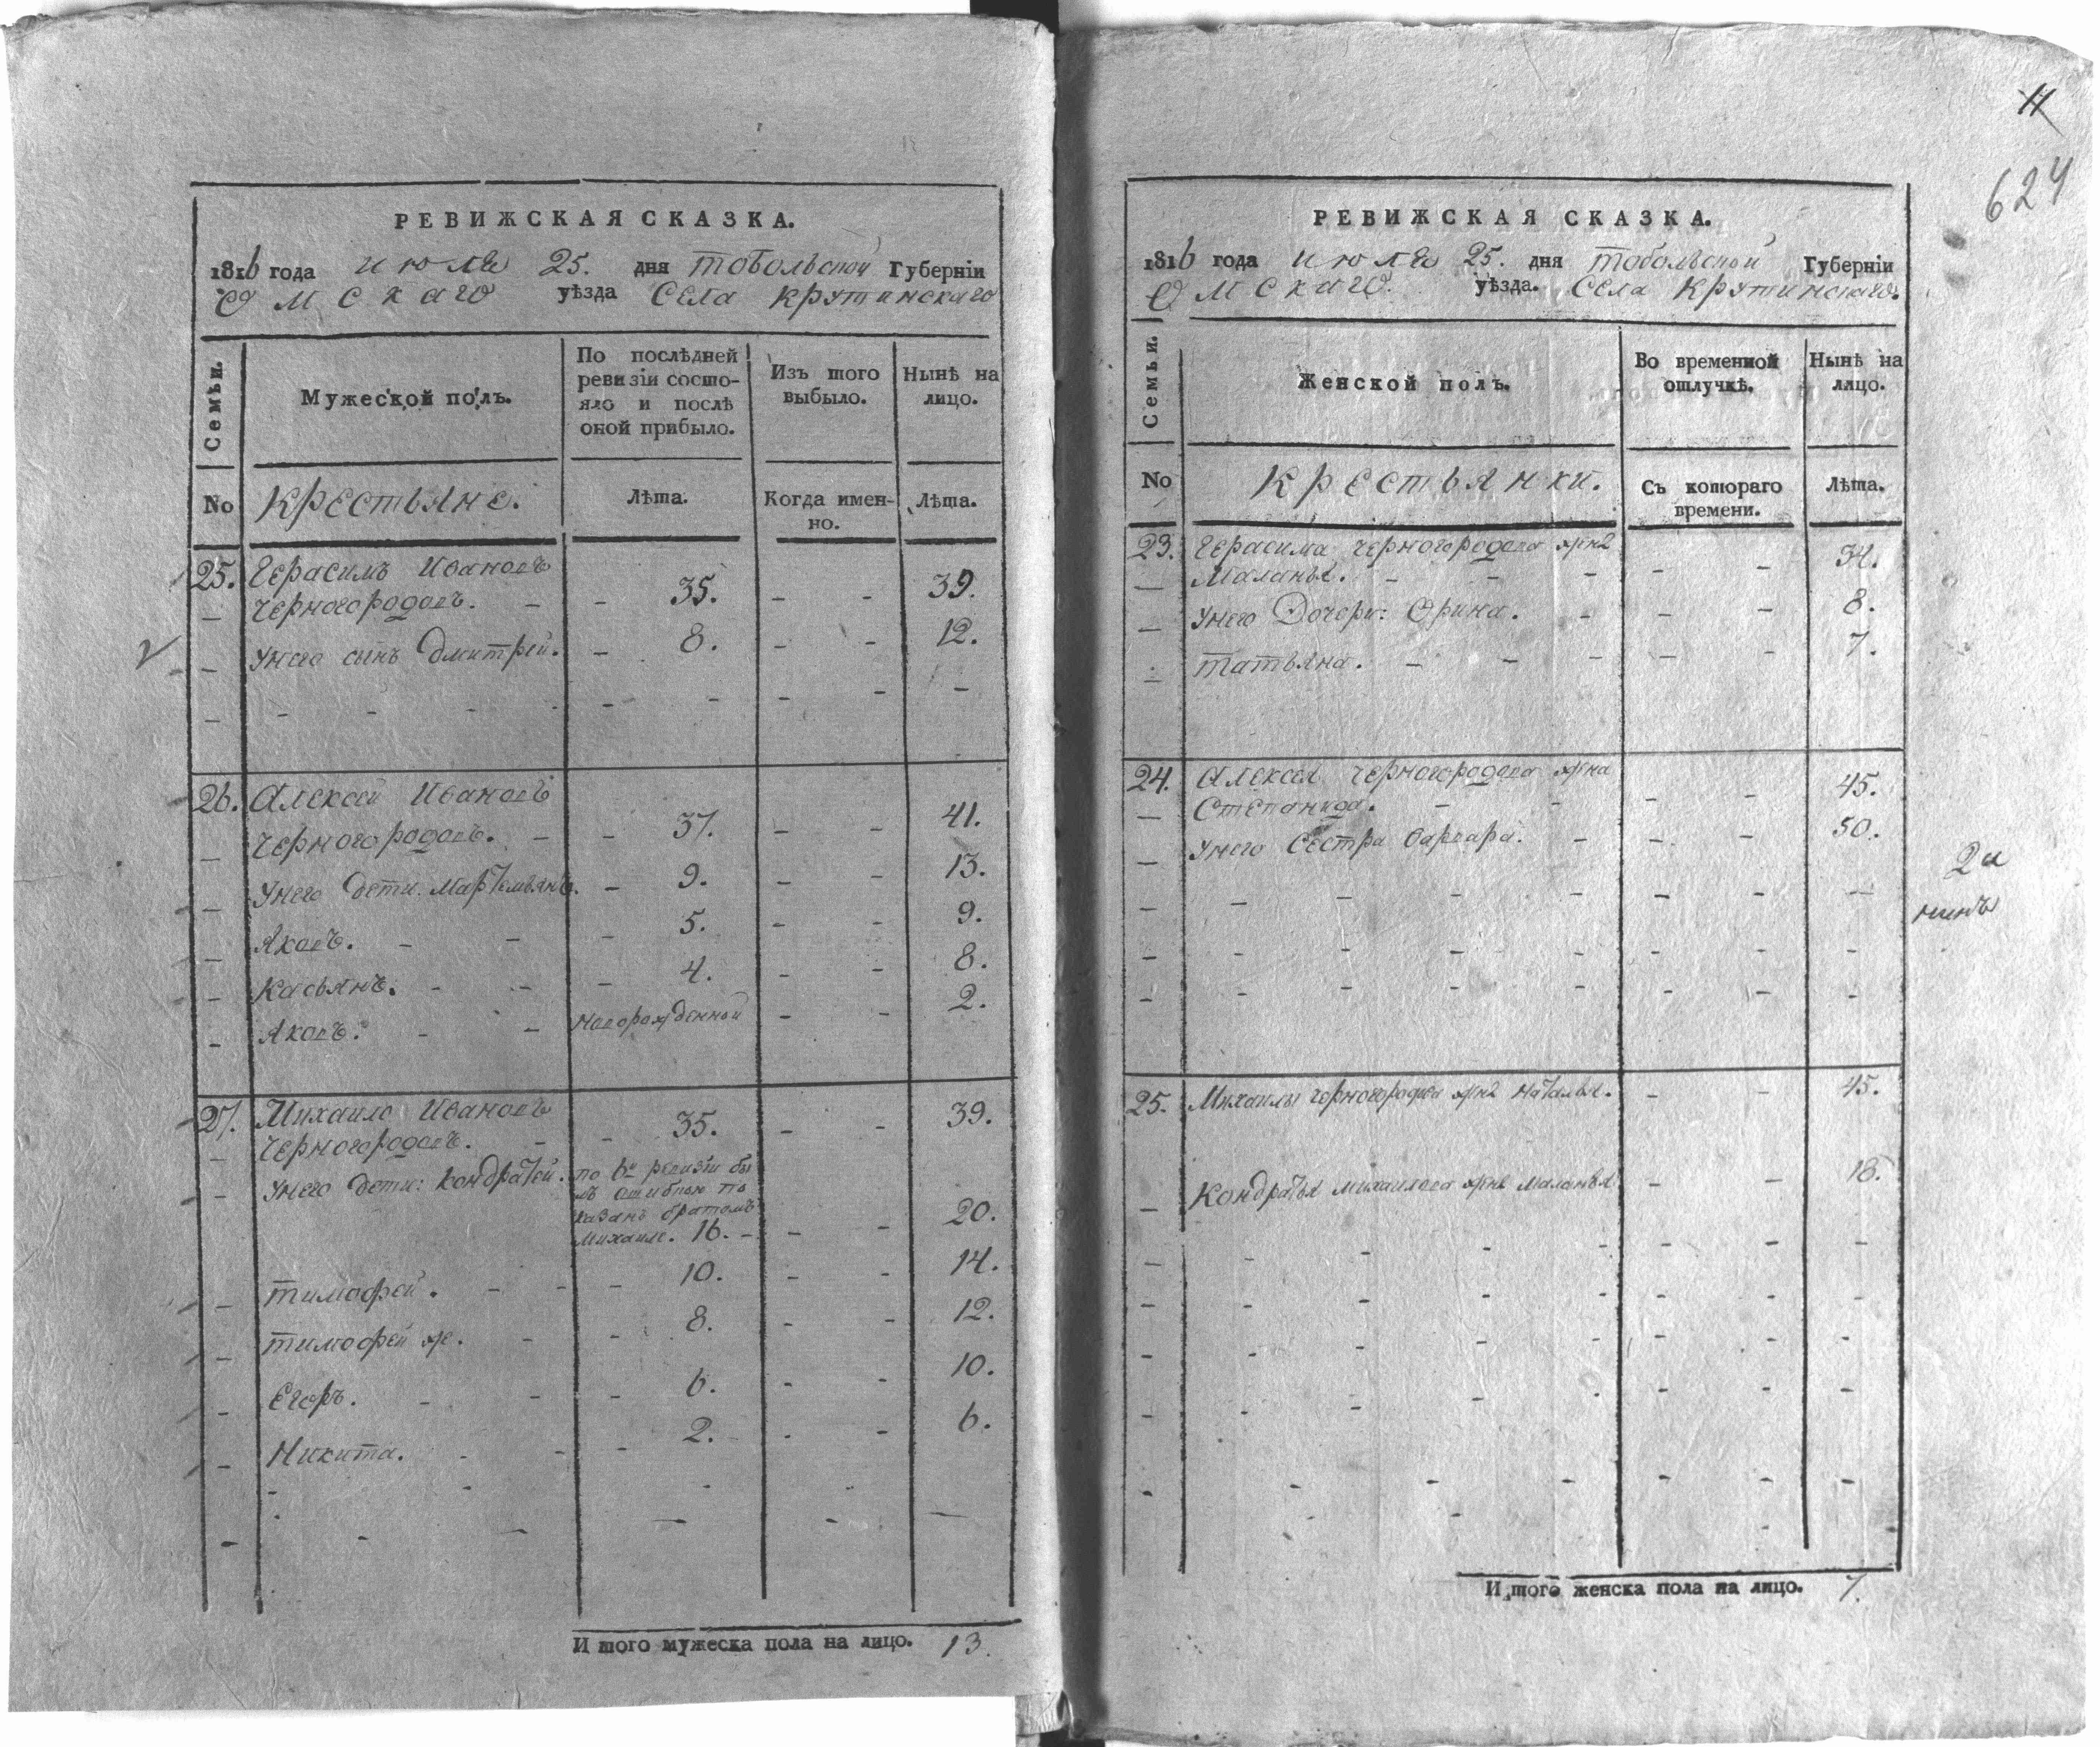 РЕВИЖСКАЯ СКАЗКА.
1816 года июля 25. дня тобольской Губерніи
Омскаго уѣзда Села Крутинскаго
Семьи.
Мужеской полъ.
По послѣдней ревизіи состо-
яло и послѣ
оной прибыло.
Изъ того
выбыло.
Нынѣ на
лицо.
No
Крестьяне.
Лѣта.
Когда имен-
но.
Лѣта.
25. Герасимъ Ивановъ
Черногородовъ. - - 35. - - 39.
Унего сынъ Дмитрей. - 8. - - 12.
26. Алексей Ивановъ
Черногородовъ. - - 37. - - 41.
Унего дети. Мартемьянъ. - 9. - - 13.
Яковъ. - - - 5. - - 9.
Касьянъ. - - - 4. - - 8.
Яковъ. - - новорожденной - - 2.
27. Михаило Ивановъ
Черногородовъ. - - 35. - - 39.
Унего дети: Кондратей. по 6й ревизіи бы
лъ ошибкою по
казанъ братомъ
Михаиле. 16. - - - 20.
тимофей. - - - 10. - - 14.
тимофей же. - - 8. - - 12.
Егоръ. - - - 6. - - 10.
Никита. - - - 2. - - 6.
И того мужеска пола на лицо. 13.
11
624
РЕВИЖСКАЯ СКАЗКА.
1816 года июля 25. дня тобольской Губерніи
Омскаго. уѣзда. Села Крутинскаго.
Семьи.
Женской полъ.
Во временной
отлучкѣ.
Нынѣ на
лицо.
No
Крестьянки.
Съ котораго
времени.
Лѣта.
23. Герасима Черногородова жена
Маланья. - - - - - 34.
Унего Дочери: Орина. - - - 8.
татьяна. - - - - - 7.
24. Алексея Черногородова жена
Степанида. - - - - 45.
Унего Сестра варвара. - - - 50.
25. Михаилы Черногородова жена Наталья. - - 45.
Кондратья Михаилова жена Маланья - - 18.
И того женска пола на лицо. 7.